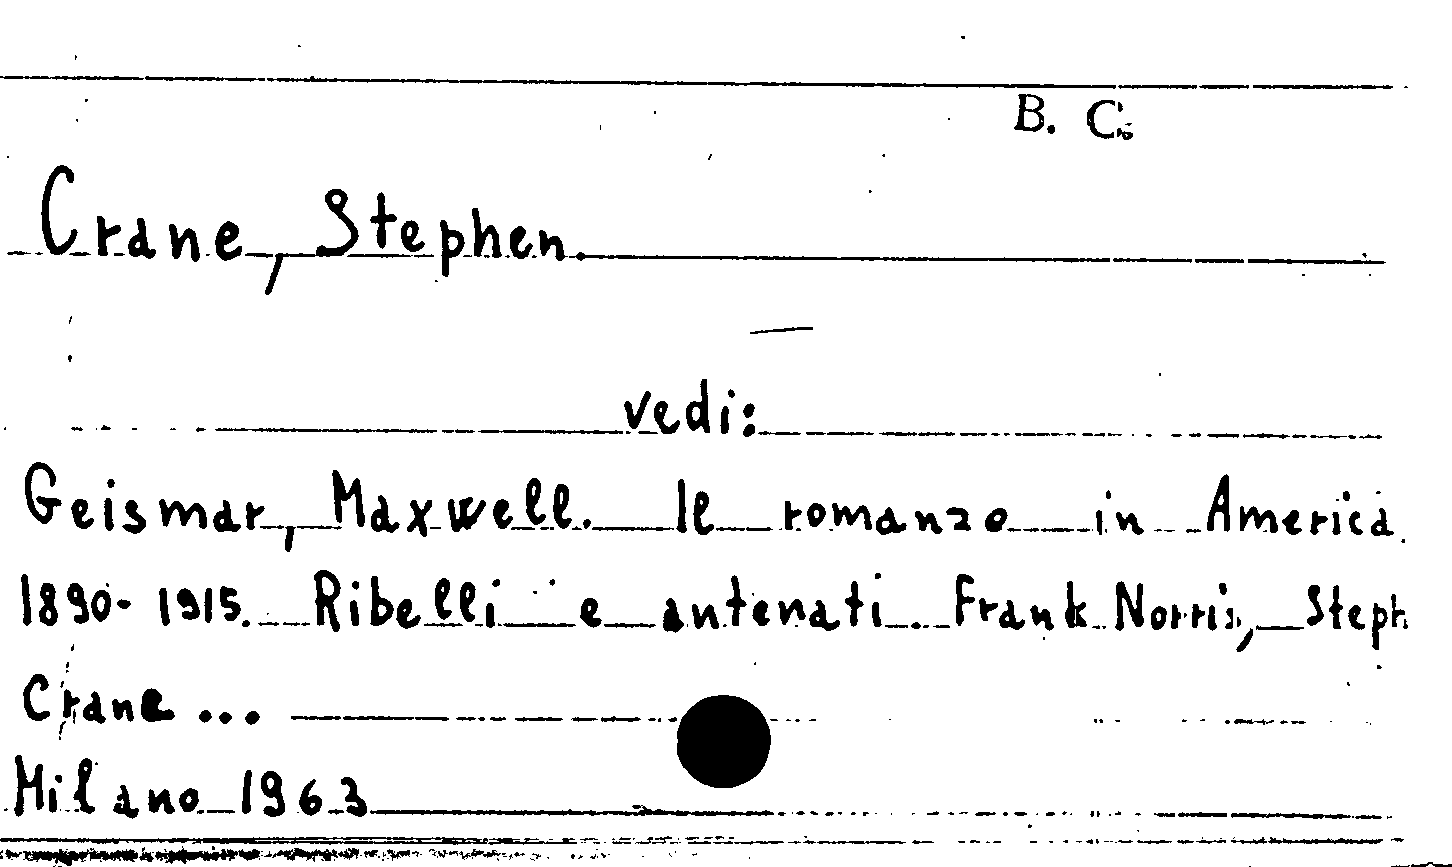 B. C.
Crane, Stephen.
vedi:
Geismar, Maxwell. Il romanzo in America.
1890-1915. Ribelli e antenati. Frank Norris, Steph
Crane ...
Milano 1963